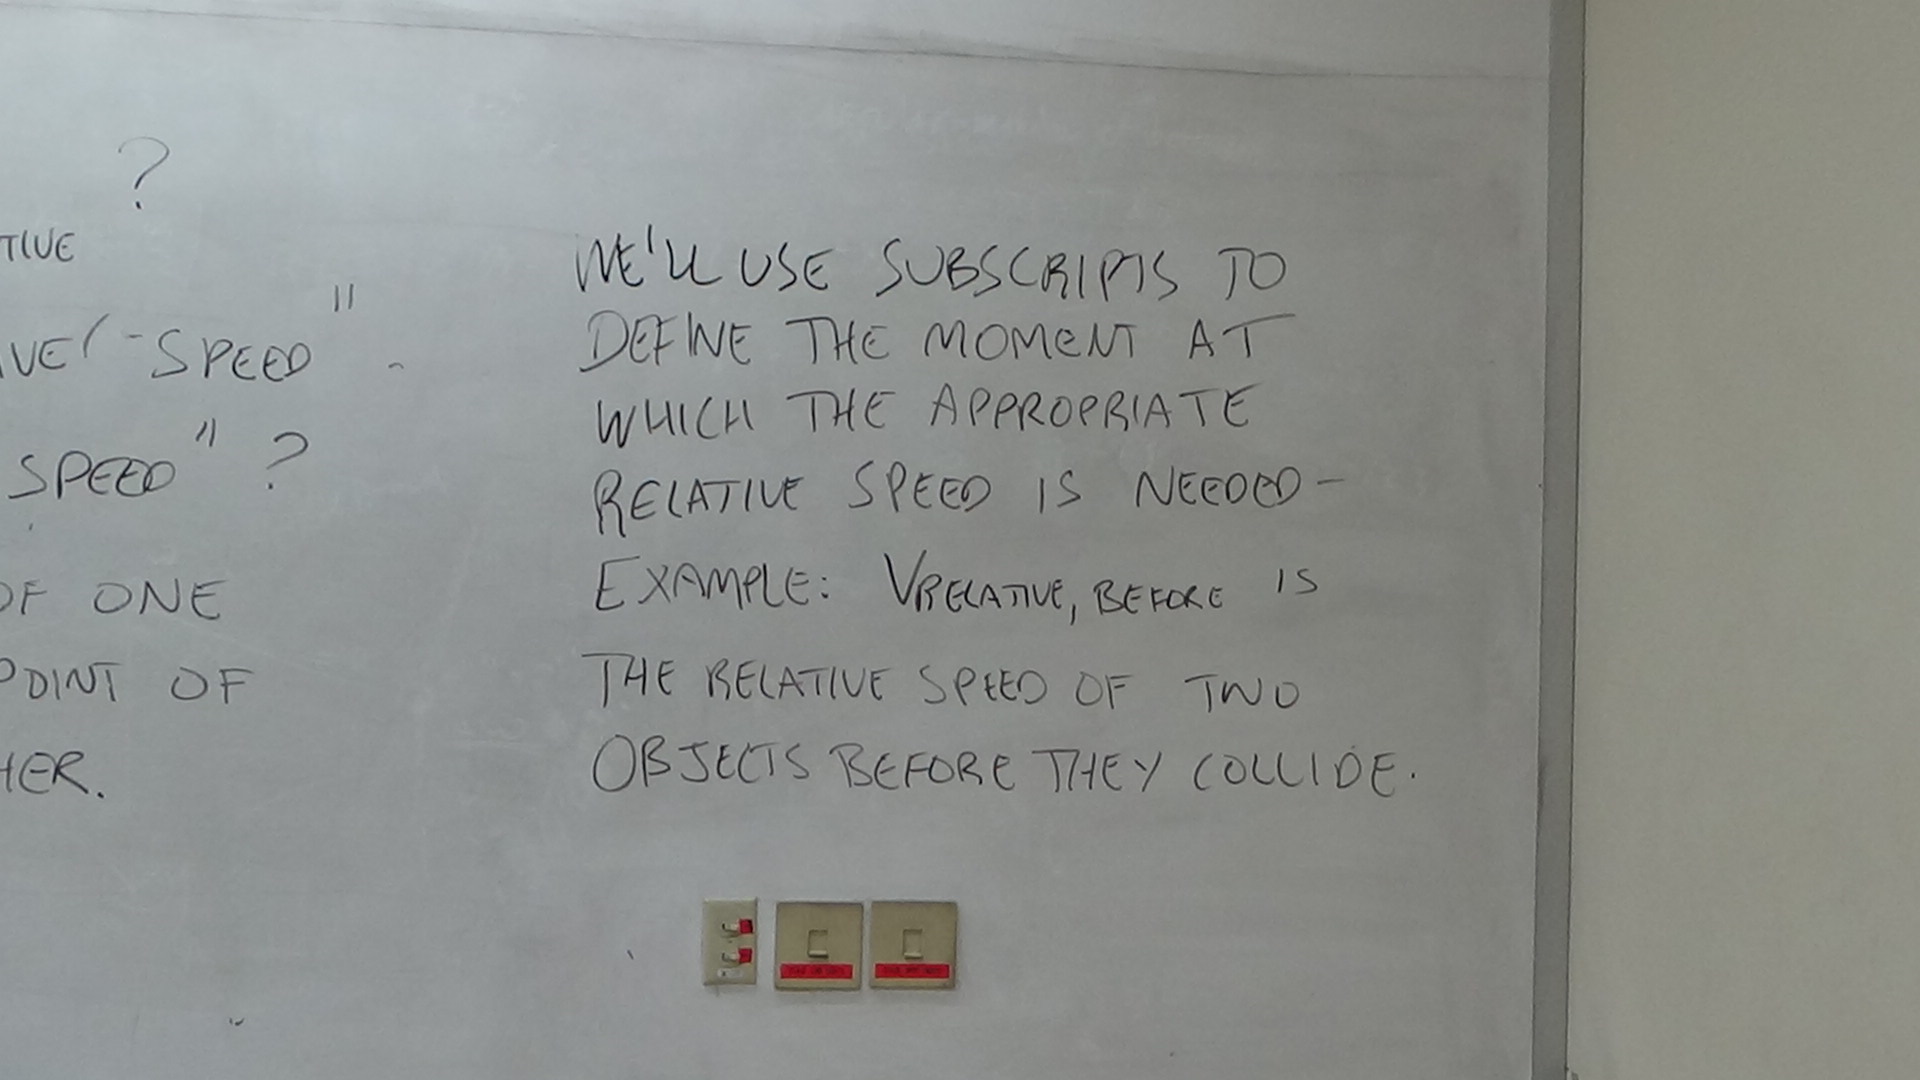 ?
TIVE
IVE(-SPEED" -
SPEED" ?
OF ONE
POINT OF
HER.
WE'LL USE SUBSCRIPTS TO
DEFINE THE MOMENT AT
WHICH THE APPROPRIATE
RELATIVE SPEED IS NEEDED-
EXAMPLE: VRELATIVE, BEFORE IS
THE RELATIVE SPEED OF TWO
OBJECTS BEFORE THEY COLLIDE.